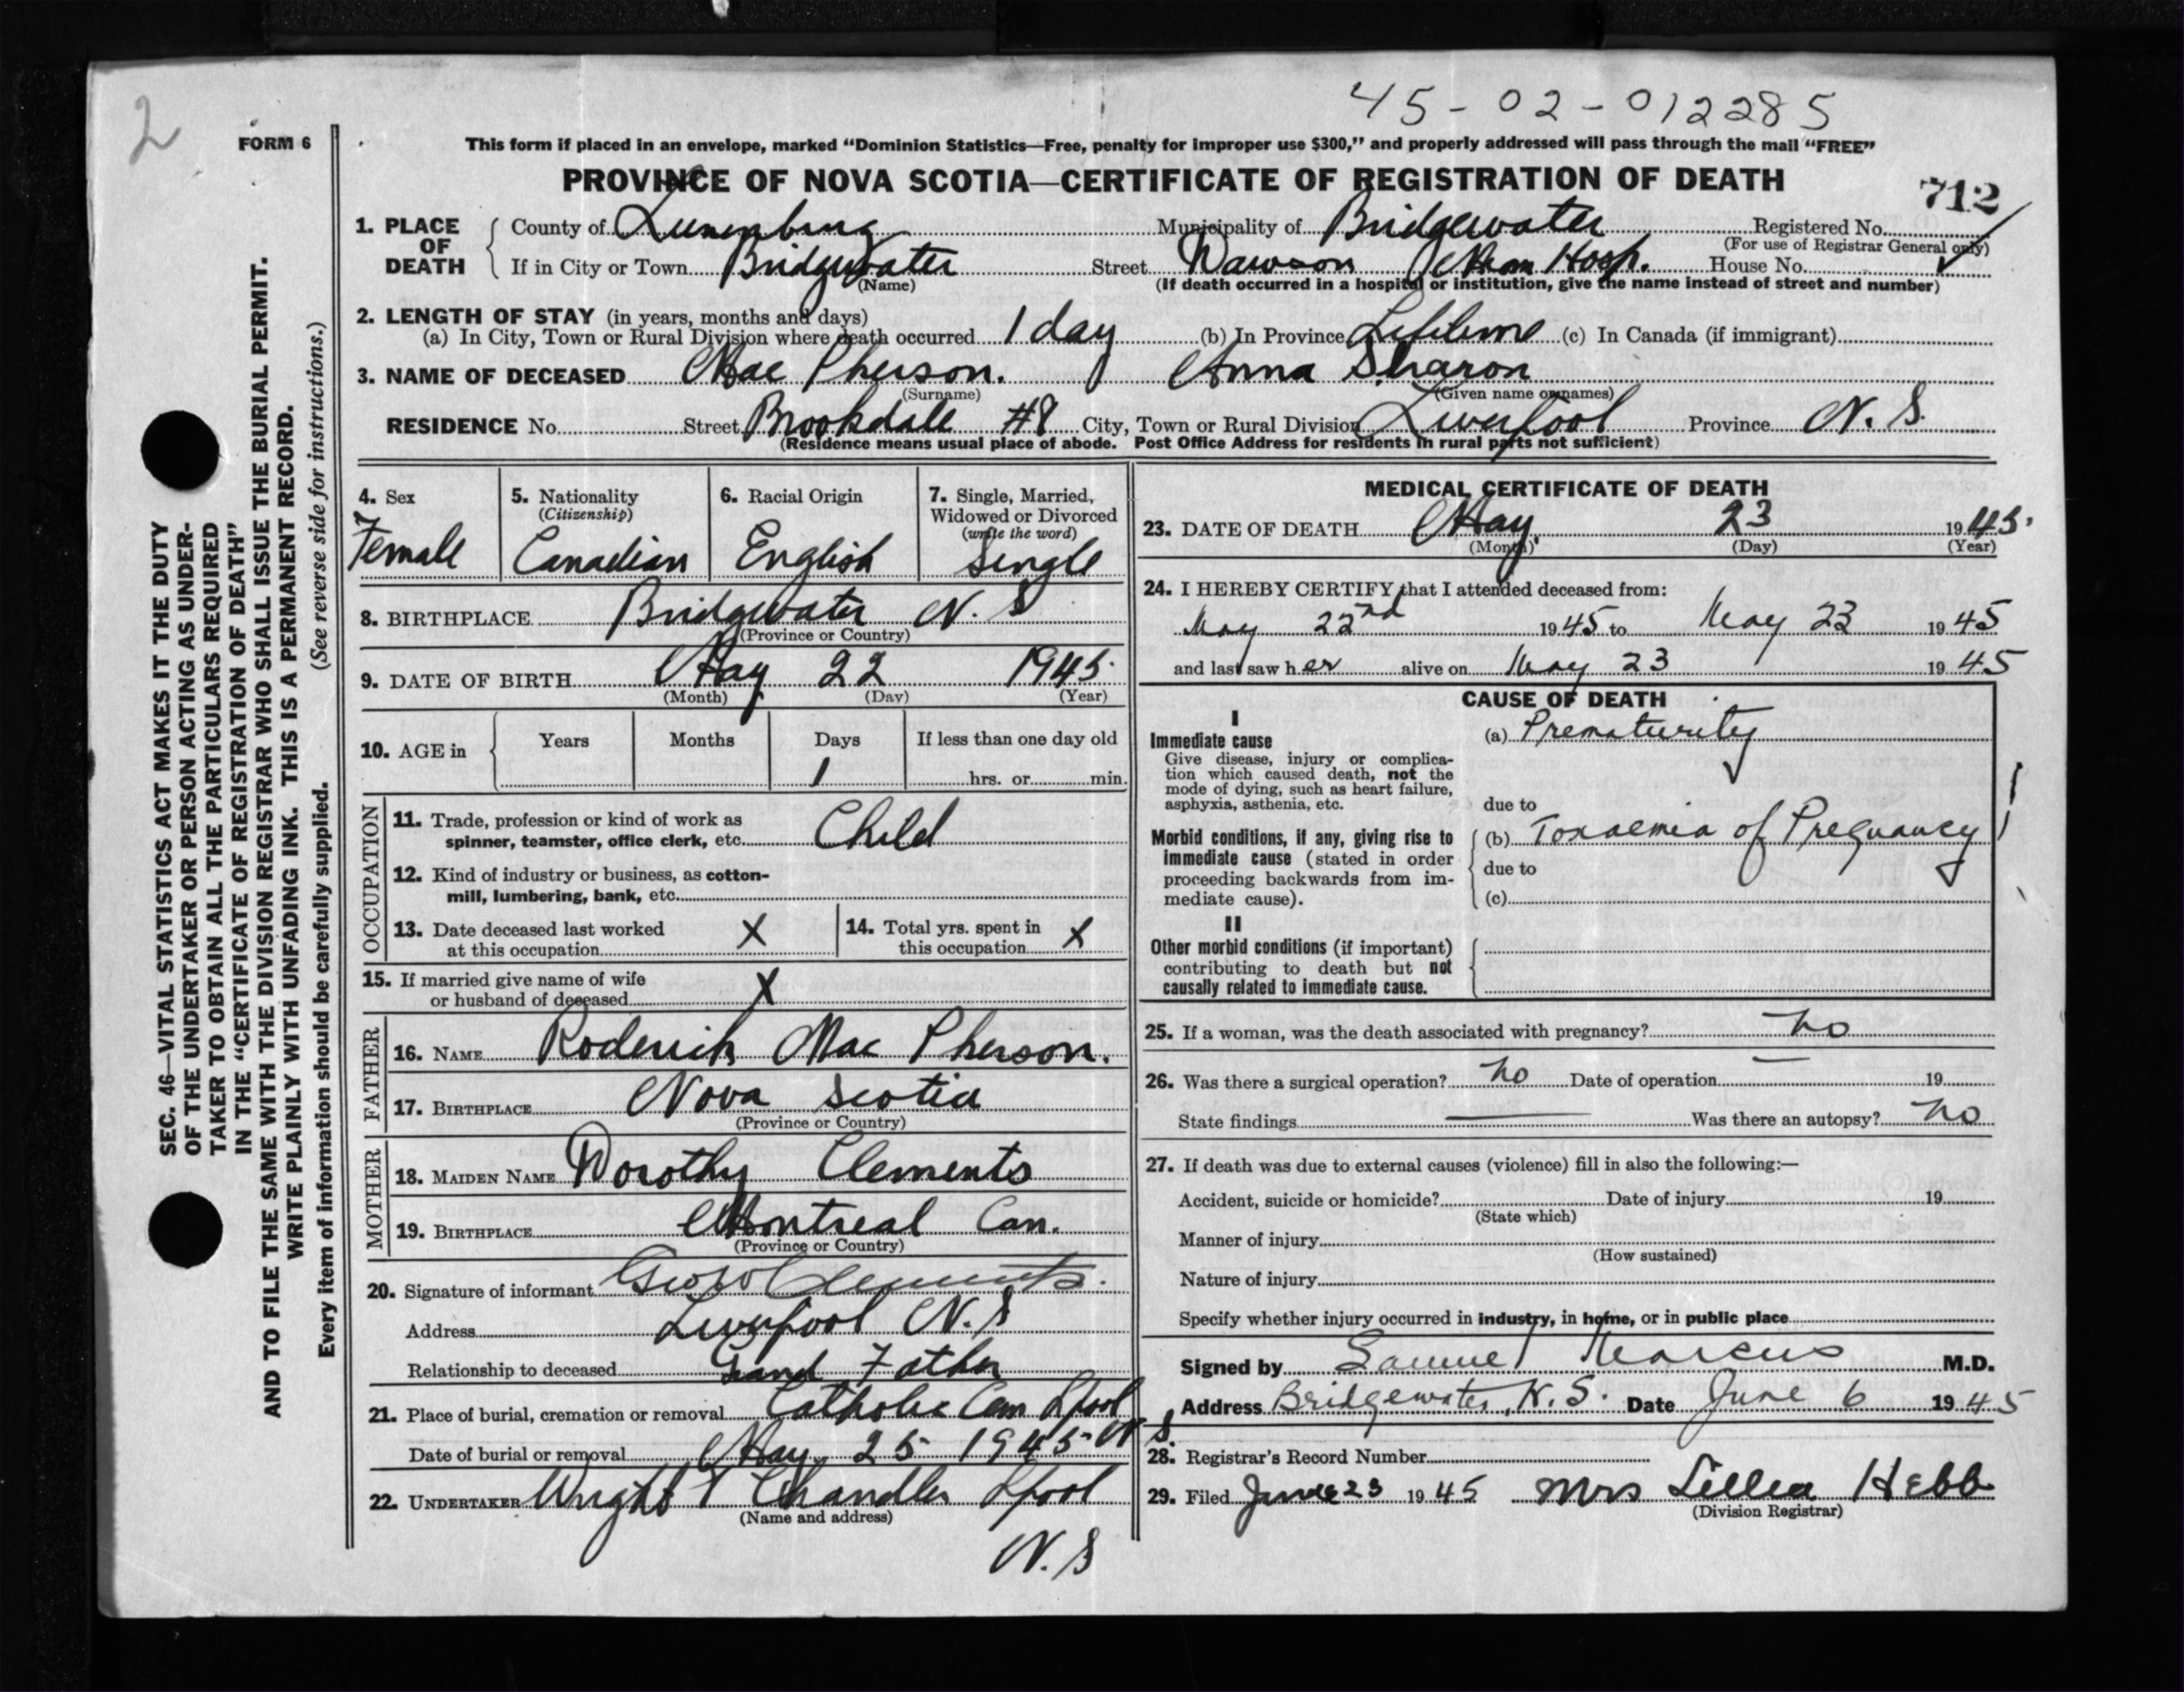 2
45-02-012285
FORM 6
This form if placed in an envelope, marked “Dominion Statistics—Free, penalty for improper use $300,” and properly addressed will pass through the mail “FREE”
PROVINCE OF NOVA SCOTIA—CERTIFICATE OF REGISTRATION OF DEATH
712
1. PLACE OF DEATH
County of Lunenburg Municipality of Bridgewater Registered No.
(For use of Registrar General only)
If in City or Town Bridgewater Street Dawson Mem Hosp. House No.
(Name) (If death occurred in a hospital or institution, give the name instead of street and number)
2. LENGTH OF STAY (in years, months and days)
(a) In City, Town or Rural Division where death occurred 1 day (b) In Province Lifetime (c) In Canada (if immigrant)
3. NAME OF DECEASED Mac Pherson. Anna Sharon
(Surname) (Given name or names)
RESIDENCE No. Street Brookdale #8 City, Town or Rural Division Liverpool Province N. S.
(Residence means usual place of abode. Post Office Address for residents in rural parts not sufficient)
4. Sex
Female
5. Nationality
(Citizenship)
Canadian
6. Racial Origin
English
7. Single, Married, Widowed or Divorced
(write the word)
Single
8. BIRTHPLACE Bridgewater N. S
(Province or Country)
9. DATE OF BIRTH May 22 1945
(Month) (Day) (Year)
10. AGE in
Years Months Days If less than one day old
1 hrs. or min.
OCCUPATION
11. Trade, profession or kind of work as
spinner, teamster, office clerk, etc. Child
12. Kind of industry or business, as cotton-
mill, lumbering, bank, etc.
13. Date deceased last worked
at this occupation X
14. Total yrs. spent in
this occupation X
15. If married give name of wife
or husband of deceased X
FATHER
16. NAME Roderick Mac Pherson.
17. BIRTHPLACE Nova Scotia
(Province or Country)
MOTHER
18. MAIDEN NAME Dorothy Clements
19. BIRTHPLACE Montreal Can.
(Province or Country)
20. Signature of informant Geo W Clements.
Address Liverpool N. S
Relationship to deceased Grand Father
21. Place of burial, cremation or removal Catholic Cem Lpool N S.
Date of burial or removal May 25 1945
22. UNDERTAKER Wright & Chandler Lpool
(Name and address)
N. S
MEDICAL CERTIFICATE OF DEATH
23. DATE OF DEATH May 23 1945.
(Month) (Day) (Year)
24. I HEREBY CERTIFY that I attended deceased from:
May 22nd 1945 to May 23 1945
and last saw her alive on May 23 1945
CAUSE OF DEATH
I
Immediate cause
Give disease, injury or complica-
tion which caused death, not the
mode of dying, such as heart failure,
asphyxia, asthenia, etc.
(a) Prematurity
due to
Morbid conditions, if any, giving rise to
immediate cause (stated in order
proceeding backwards from im-
mediate cause).
(b) Toxaemia of Pregnancy
due to
(c)
II
Other morbid conditions (if important)
contributing to death but not
causally related to immediate cause.
25. If a woman, was the death associated with pregnancy? no
26. Was there a surgical operation? no Date of operation — 19
State findings — Was there an autopsy? no
27. If death was due to external causes (violence) fill in also the following:—
Accident, suicide or homicide? Date of injury 19
(State which)
Manner of injury
(How sustained)
Nature of injury
Specify whether injury occurred in industry, in home, or in public place
Signed by Samuel Marcus M.D.
Address Bridgewater, N. S. Date June 6 1945
28. Registrar's Record Number
29. Filed June 23 1945 Mrs Lillia Hebb
(Division Registrar)
SEC. 46—VITAL STATISTICS ACT MAKES IT THE DUTY
OF THE UNDERTAKER OR PERSON ACTING AS UNDER-
TAKER TO OBTAIN ALL THE PARTICULARS REQUIRED
IN THE “CERTIFICATE OF REGISTRATION OF DEATH”
AND TO FILE THE SAME WITH THE DIVISION REGISTRAR WHO SHALL ISSUE THE BURIAL PERMIT.
WRITE PLAINLY WITH UNFADING INK. THIS IS A PERMANENT RECORD.
Every item of information should be carefully supplied. (See reverse side for instructions.)